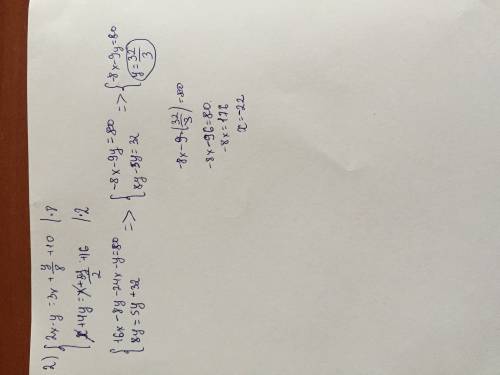 2) { 2x-y = 3x + y/8 + 10 | ·8
x + 4y = x + 5y/2 + 16 | ·2
{ 16x - 8y - 24x - y = 80
8y = 5y + 32
=> { -8x - 9y = 80
8y - 5y = 32
=> { -8x - 9y = 80
y = 32/3
-8x - 9·(32/3) = 80
-8x - 96 = 80
-8x = 176
x = -22